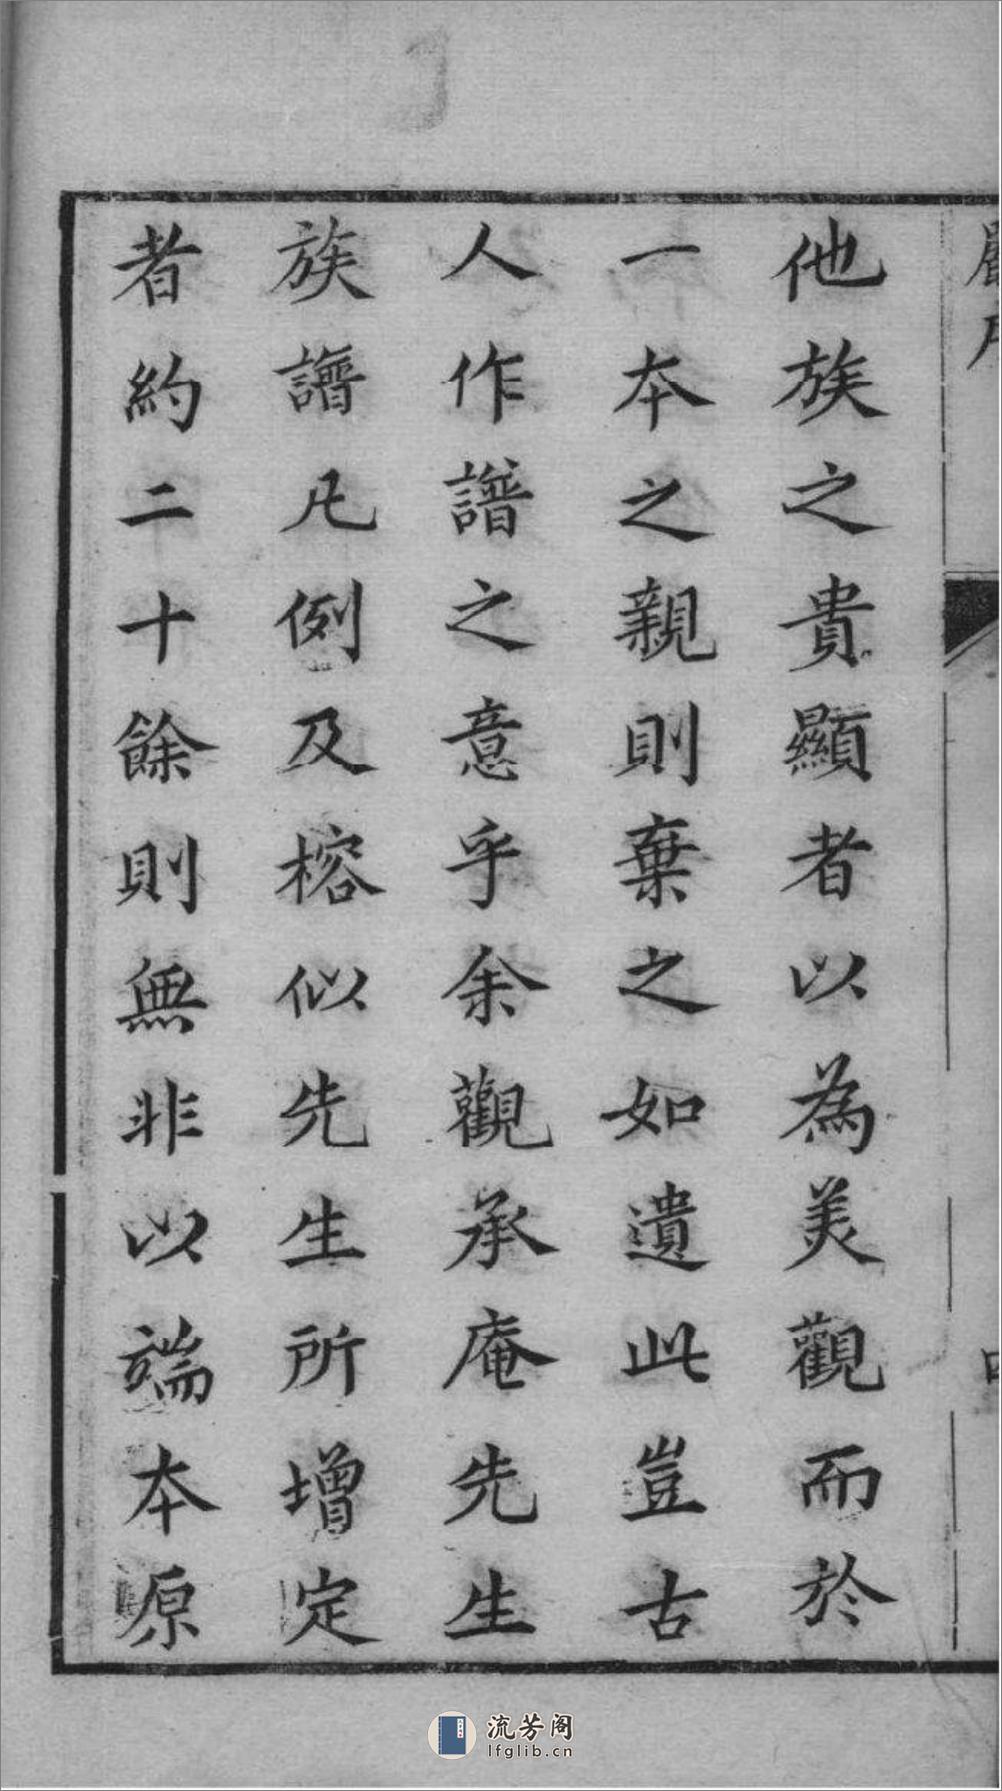 他族之貴顯者以為美觀而於
一本之親則棄之如遺此豈古
人作譜之意乎余觀承庵先生
族譜凡例及榕似先生所增定
者約二十餘則無非以端本原
流芳阁
lfglib.cn